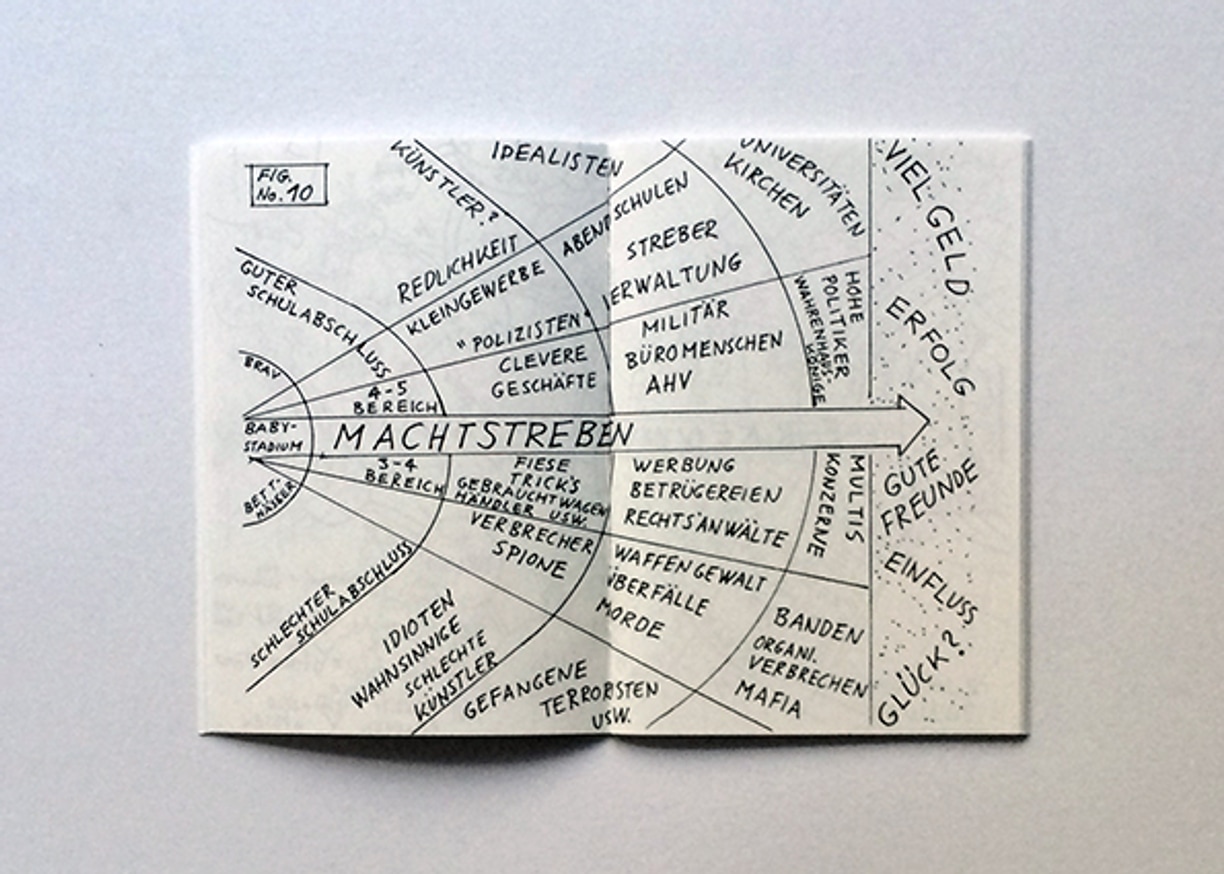 FIG.
No. 10
KÜNSTLER?
IDEALISTEN
REDLICHKEIT
KLEINGEWERBE
ABENDSCHULEN
STREBER
VERWALTUNG
UNIVERSITÄTEN
KIRCHEN
GUTER
SCHULABSCHLUSS
BRAV
"POLIZISTEN"
CLEVERE
GESCHÄFTE
4-5
BEREICH
MILITÄR
BÜROMENSCHEN
AHV
HOHE
POLITIKER
WAHRENHAUS-
KÖNIGE
BABY-
STADIUM
MACHTSTREBEN
VIEL GELD
ERFOLG
GUTE
FREUNDE
EINFLUSS
GLÜCK?
BETT-
NÄSSER
3-4
BEREICH
FIESE
TRICK'S
GEBRAUCHTWAGEN
HÄNDLER USW.
WERBUNG
BETRÜGEREIEN
RECHTSANWÄLTE
MULTIS
KONZERNE
VERBRECHER
SPIONE
WAFFENGEWALT
ÜBERFÄLLE
MORDE
SCHLECHTER
SCHULABSCHLUSS
IDIOTEN
WAHNSINNIGE
SCHLECHTE
KÜNSTLER
GEFANGENE
TERRORISTEN
USW.
BANDEN
ORGANI.
VERBRECHEN
MAFIA